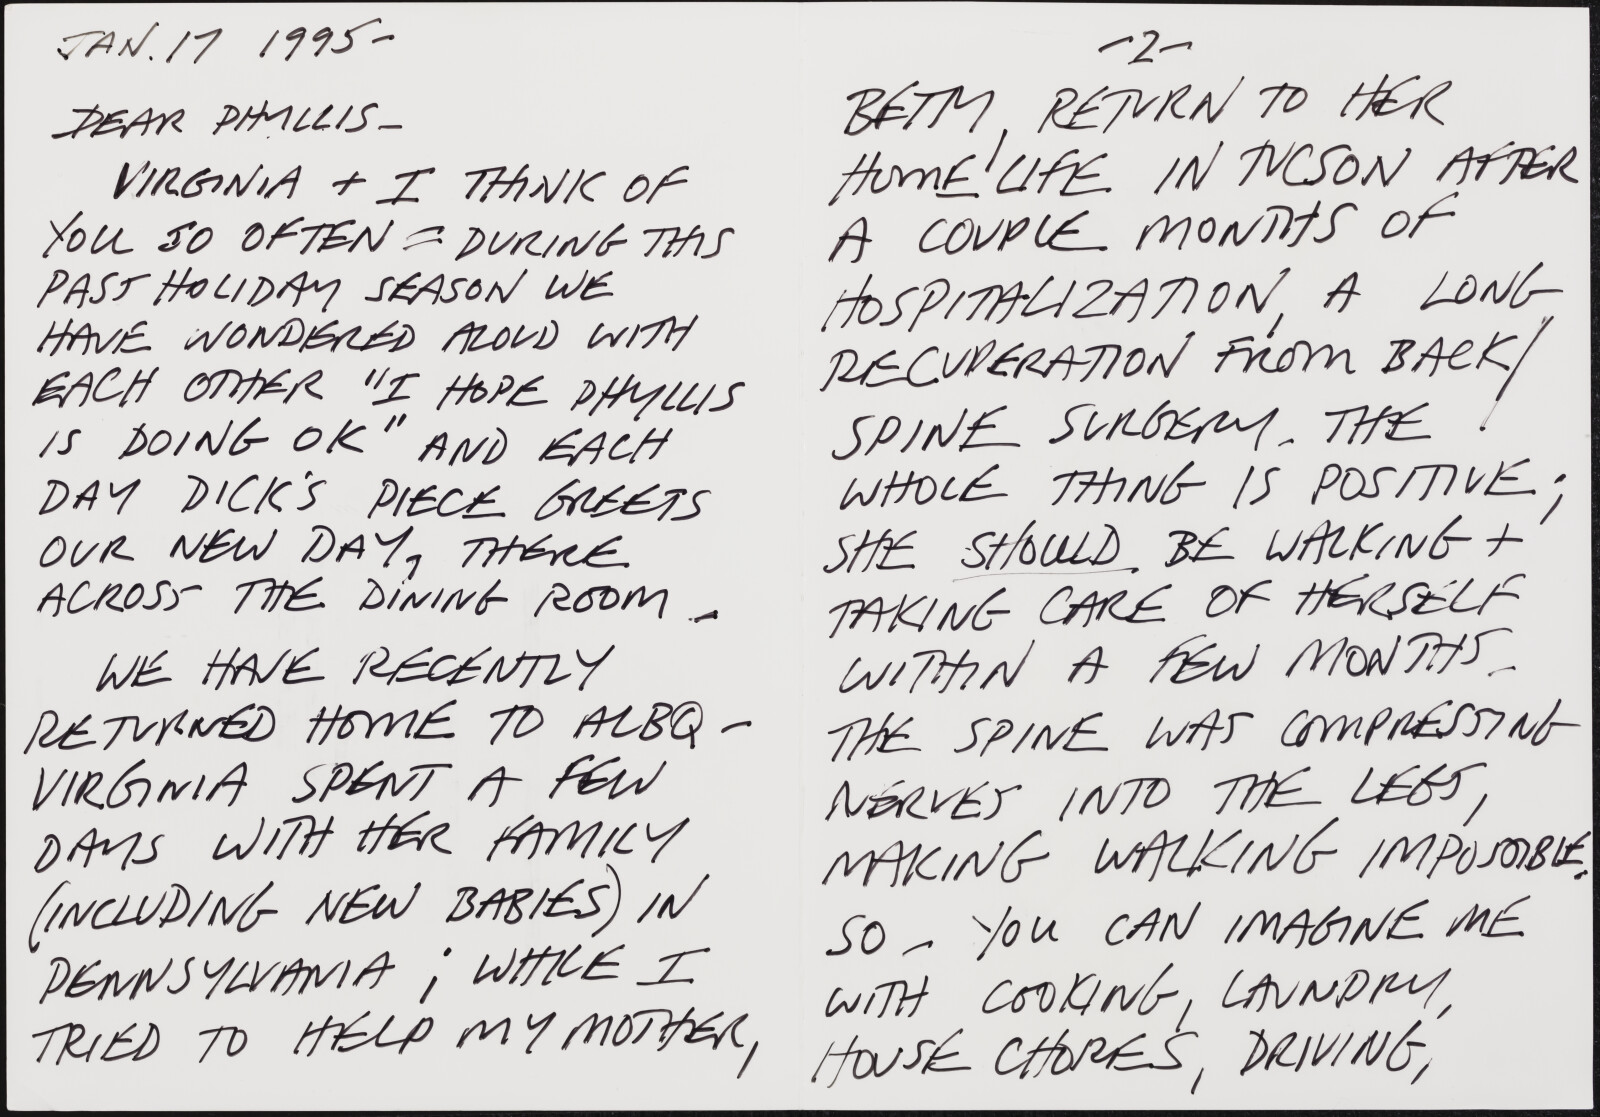 JAN. 17 1995-
DEAR PHYLLIS-
VIRGINIA + I THINK OF
YOU SO OFTEN = DURING THIS
PAST HOLIDAY SEASON WE
HAVE WONDERED ALOUD WITH
EACH OTHER "I HOPE PHYLLIS
IS DOING OK" AND EACH
DAY DICK'S PIECE GREETS
OUR NEW DAY, THERE
ACROSS THE DINING ROOM.
WE HAVE RECENTLY
RETURNED HOME TO ALBQ -
VIRGINIA SPENT A FEW
DAYS WITH HER FAMILY
(INCLUDING NEW BABIES) IN
PENNSYLVANIA; WHILE I
TRIED TO HELP MY MOTHER,
-2-
BETTY, RETURN TO HER
HOME/LIFE IN TUCSON AFTER
A COUPLE MONTHS OF
HOSPITALIZATION, A LONG
RECUPERATION FROM BACK/
SPINE SURGERY. THE !
WHOLE THING IS POSITIVE;
SHE SHOULD BE WALKING +
TAKING CARE OF HERSELF
WITHIN A FEW MONTHS.
THE SPINE WAS COMPRESSING
NERVES INTO THE LEGS,
MAKING WALKING IMPOSSIBLE.
SO - YOU CAN IMAGINE ME
WITH COOKING, LAUNDRY,
HOUSE CHORES, DRIVING,